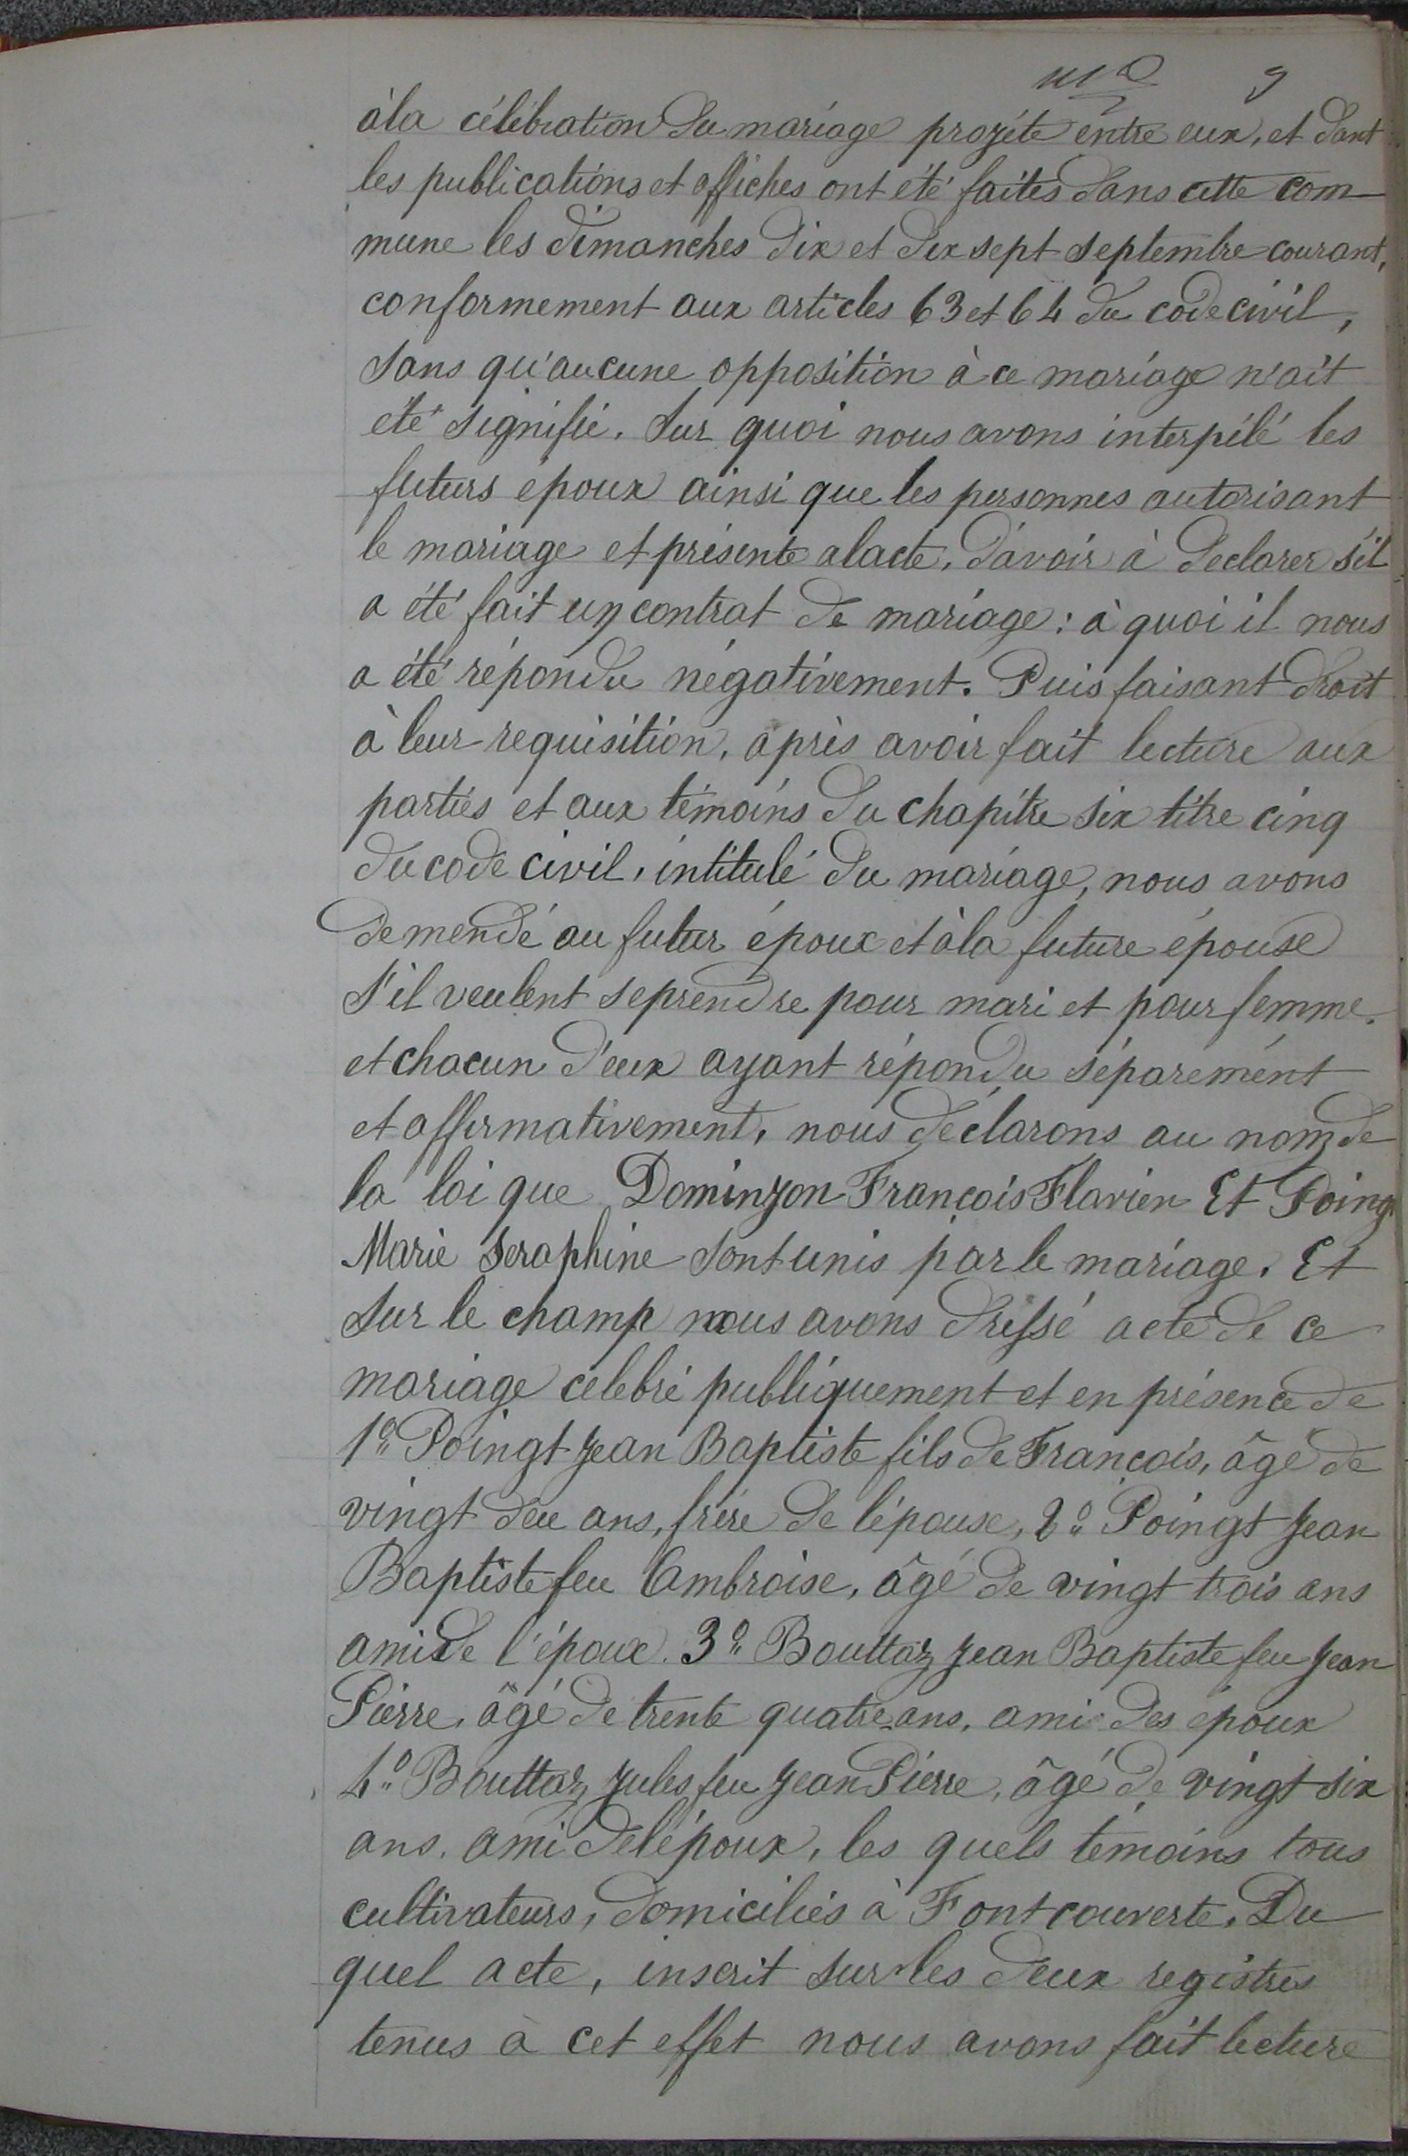 9
à la célébration du mariage projété entre eux, et dont
les publications et affiches ont été faites dans cette com-
mune les dimanches dix et dix sept septembre courant,
conformement aux articles 63 et 64 du code civil,
sans qu'aucune opposition à ce mariage n'ait
été signifié. Sur quoi nous avons interpélé les
futurs époux ainsi que les personnes autorisant
le mariage et présente alacte, d'avoir à déclarer s'il
a été fait un contrat de mariage : à quoi il nous
a été répondu négativement. Puis faisant droit
à leur requisition, après avoir fait lecture aux
parties et aux témoins du chapitre six titre cinq
du code civil, intitulé du mariage, nous avons
demendé au futur époux et à la future épouse
s'il veulent se prendre pour mari et pour femme.
et chacun d'eux ayant répondu séparément
et affirmativement, nous déclarons au nom de
la loi que Dominjon François Flavien Et Poingt
Marie Seraphine sont unis par le mariage. Et
sur le champ nous avons dressé acte de ce
mariage célébré publiquement et en présence de
1° Poingt Jean Baptiste fils de François, âgé de
vingt deu ans, frère de l'épouse, 2° Poingt Jean
Baptiste feu Ambroise, âgé de vingt trois ans
ami de l'époux. 3° Bouttaz Jean Baptiste feu Jean
Pierre, âgé de trente quatre ans, ami des époux
4° Bouttaz Jules feu Jean Pierre, âgé de vingt six
ans, ami de l'époux, les quels témoins tous
cultivateurs, domiciliés à Fontcouverte. Du
quel acte, inscrit sur les deux registres
tenus à cet effet nous avons fait lecture